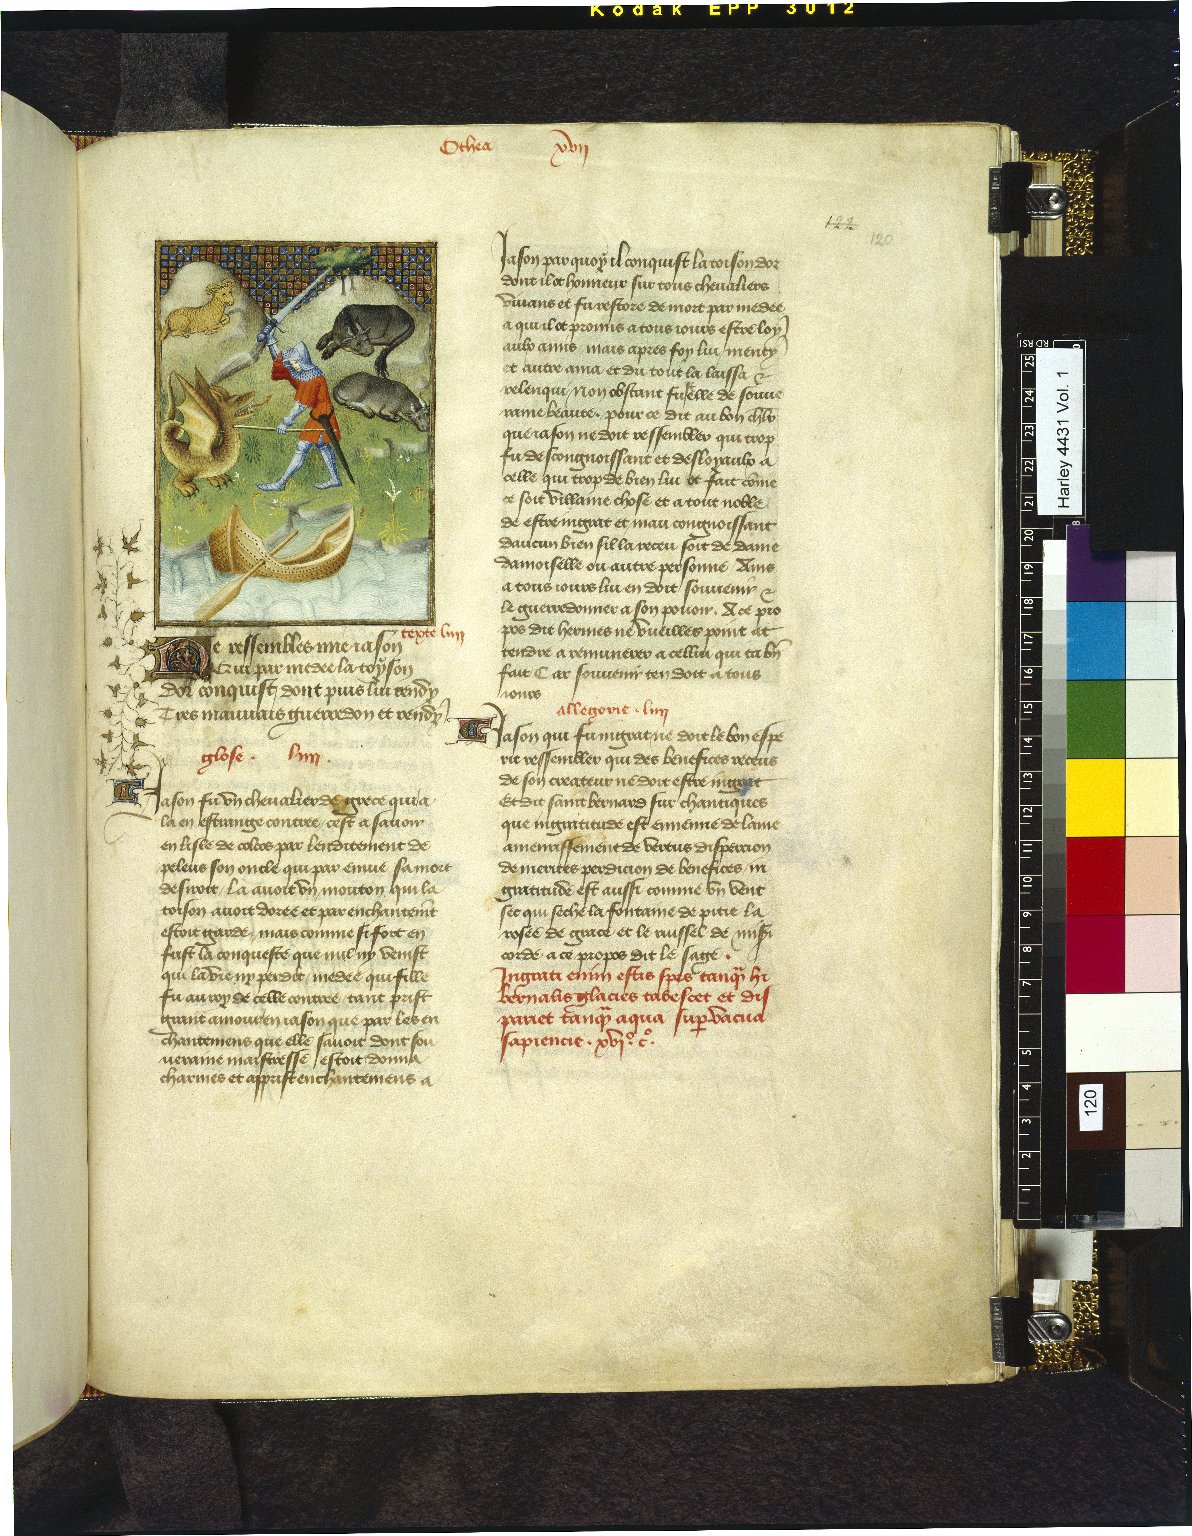 Kodak EPP 3012
Othea xvii
122
120
texte liiii
Ne ressembles mie iason
Qui par medee la toyson
Dor conquist dont puis lui rendy
Tres mauuais guerredon et tendy
glose . liiii .
Iason fu vn cheualier de grece qui a
la en estrange contree cest a sauoir
en lisle de colcos par lenditement de
peleus son oncle qui par enuie sa mort
desiroit / La auoit vn mouton qui la
toison auoit doree et par enchantemt
estoit garde / mais comme si fort en
fust la conqueste que nul ny venist
qui la vie ny perdit / medee qui fille
fu au roy de celle contree tant prist
grant amour en iason que par les en
chantemens que elle sauoit dont sou
ueraine maistresse estoit donna
charmes et apprist enchantemens a
Iason par quoy il conquist la toison dor
dont il ot honneur sur tous cheualiers
viuans et fu restore de mort par medee
a qui il ot promis a tous iours estre loy
aulx amis / mais apres foy lui menty
et autre ama et du tout la laissa &
relenqui / Non obstant fust elle de souue
raine beaute . pour ce dit au bon chlr
que iason ne doit ressembler qui trop
fu descongnoissant et desloyaulx a
celle qui trop de bien lui ot fait / Come
ce soit villaine chose et a tout noble
de estre ingrat et mau congnoissant
daucun bien sil la receu soit de dame
damoiselle ou autre personne Ains
a tous iours lui en doit souuenir &
le guerredonner a son pouoir . A ce pro
pos dit hermes ne vueilles point at
tendre a remunerer a cellui qui ta bn
fait Car souuenir ten doit a tous
iours
allegorie . liiii
Iason qui fu ingrat ne doit le bon espe
rit ressembler qui des benefices receus
de son createur ne doit estre ingrat
Et dit saint bernard sur chantiques
que ingratitude est ennemie de lame
amenrissement de vertus dispercion
de merites perdicion de benefices / in
gratitude est aussi comme vn vent
sec qui seche la fontaine de pitie la
rosee de grace et le ruissel de misi
corde / a ce propos dit le sage .
Ingrati enim estis spes tanq̃ hi
bernalis glacies tabescet et dis
pariet tanq̃ aqua supvacua
sapiencie . xvi° c° .
Harley 4431 Vol. 1
25
24
23
22
21
20
19
18
17
16
15
14
13
12
11
10
9
8
7
6
5
4
3
2
1
120